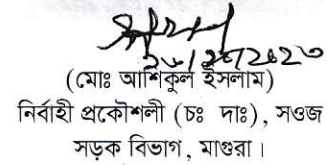 (মোঃ আশিকুল ইসলাম)
নির্বাহী প্রকৌশলী (চঃ দাঃ), সওজ
সড়ক বিভাগ, মাগুরা।